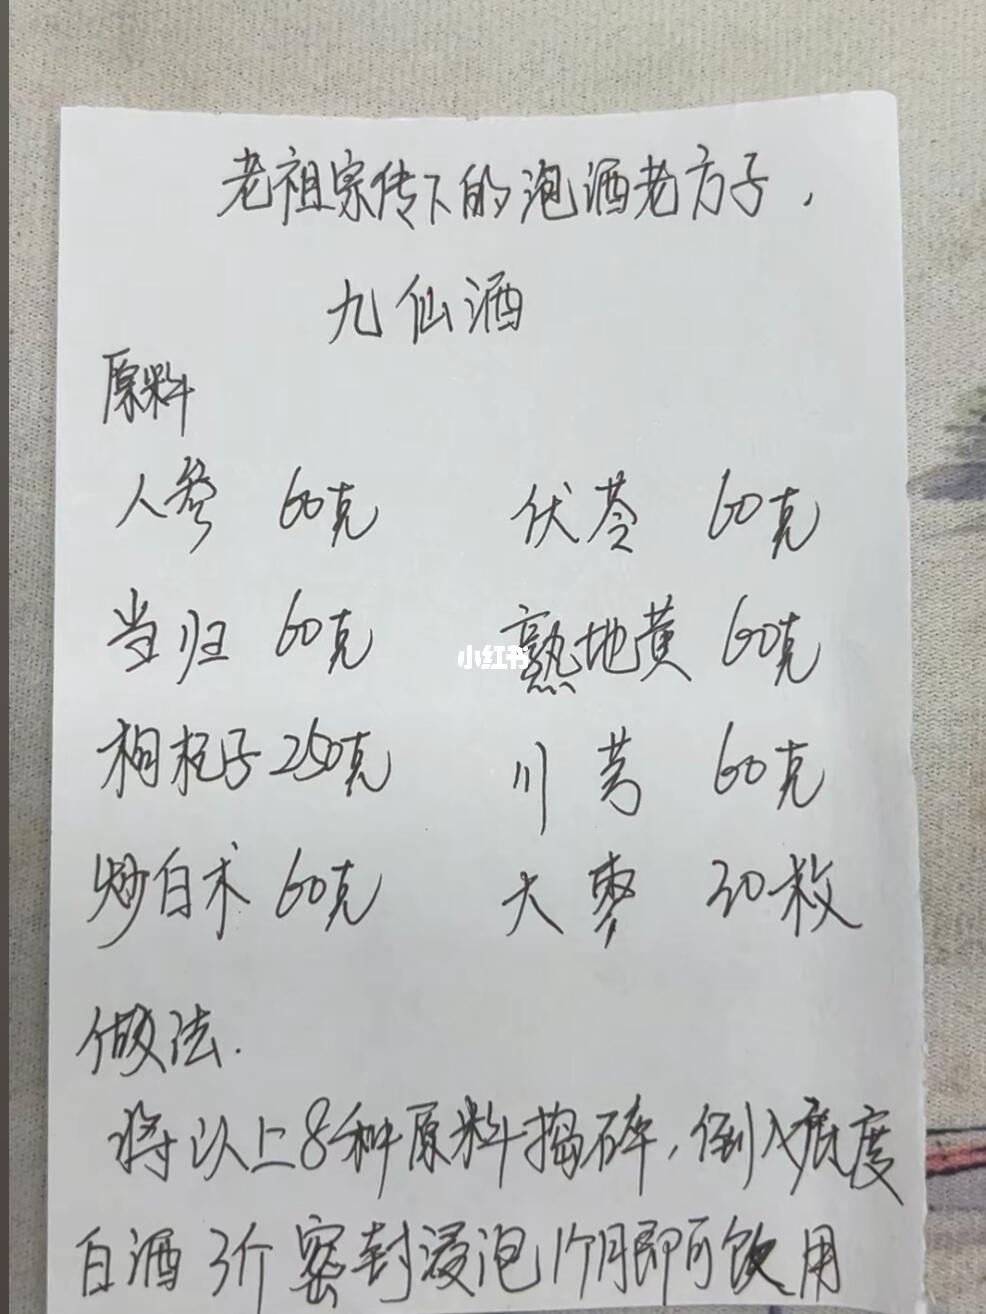 老祖宗传下的泡酒老方子，
九仙酒
原料
人参 60克 伏苓 60克
当归 60克 熟地黄 60克
小红书
枸杞子 250克 川芎 60克
炒白术 60克 大枣 30枚
做法.
将以上8种原料捣碎,倒入底度
白酒 3斤 密封浸泡1个月即可饮用